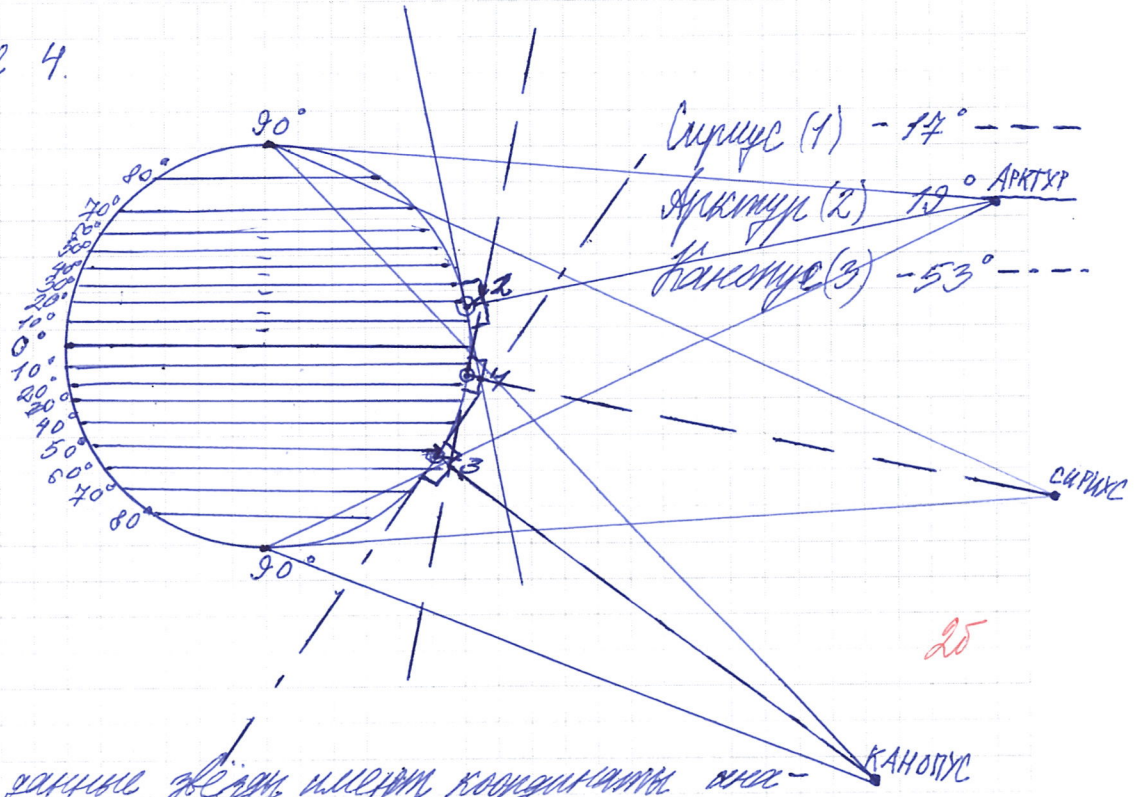 4.
90°
80°
70°
60°
50°
40°
30°
20°
10°
0°
10°
20°
30°
40°
50°
60°
70°
80
90°
Сириус (1) - 17° - - - -
Арктур (2) 19° АРКТУР
Канопус (3) - 53° - - - -
2
1
3
СИРИУС
2б
КАНОПУС
данные звёзды имеют координаты ана-